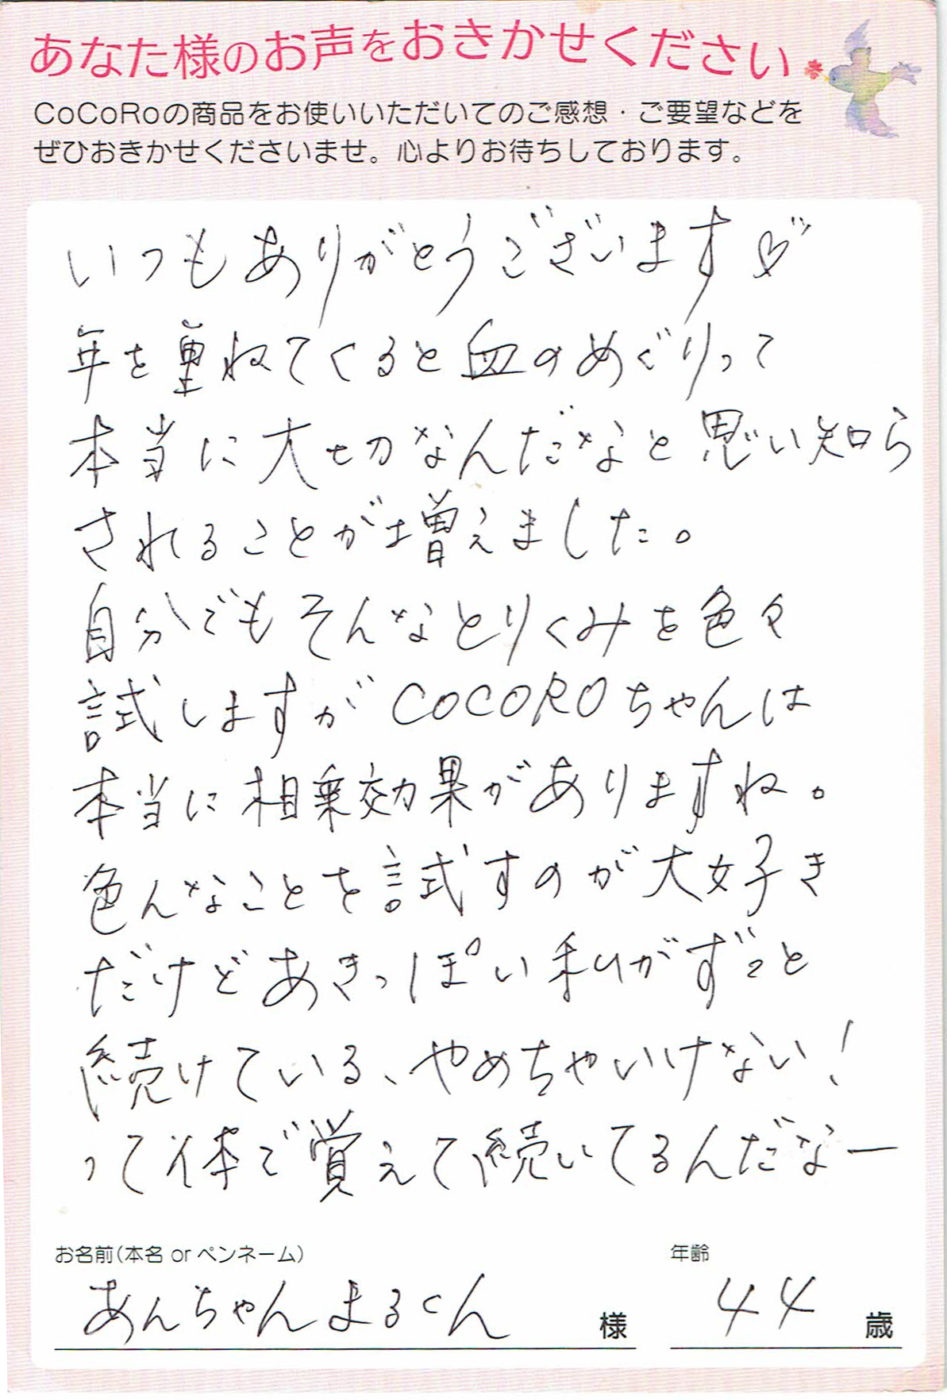 あなた様のお声をおきかせください
CoCoRoの商品をお使いいただいてのご感想・ご要望などを
ぜひおきかせくださいませ。心よりお待ちしております。
いつもありがとうございます♡
年を重ねてくると血のめぐりって
本当に大切なんだなと思い知ら
されることが増えました。
自分でもそんなとりくみを色々
試しますがCOCOROちゃんは
本当に相乗効果がありますね。
色んなことを試すのが大好き
だけどあきっぽい私がずっと
続けている、やめちゃいけない!
って体で覚えて続いてるんだなー
お名前(本名 or ペンネーム) 年齢
あんちゃんまるくん 様 44 歳